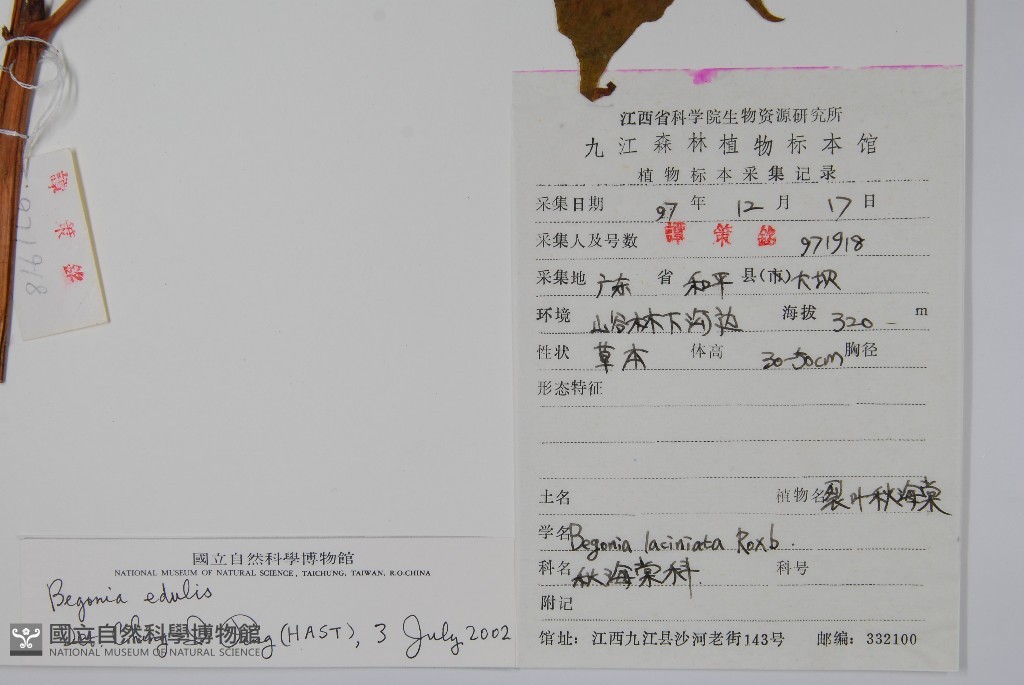 江西省科学院生物资源研究所
九江森林植物标本馆
植物标本采集记录
采集日期 97 年 12 月 17 日
采集人及号数 譚策銘 971918
采集地 广东 省 和平 县(市) 大坝
环境 山谷林下沟边 海拔 320 m
性状 草本 体高 30-50cm 胸径
形态特征
土名 植物名 裂叶秋海棠
学名 Begonia laciniata Roxb.
科名 秋海棠科 科号
附记
馆址: 江西九江县沙河老街143号 邮编: 332100
譚策銘
971918
國立自然科學博物館
NATIONAL MUSEUM OF NATURAL SCIENCE, TAICHUNG, TAIWAN, R.O.CHINA
Begonia edulis
(HAST), 3 July 2002
國立自然科學博物館
NATIONAL MUSEUM OF NATURAL SCIENCE